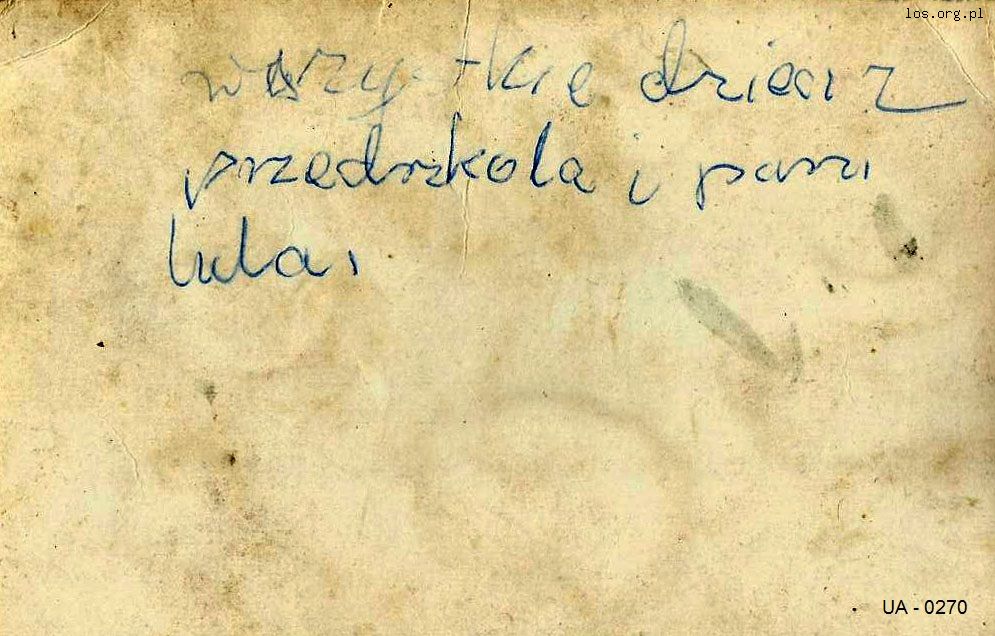 los.org.pl
wszystkie dzieci z
przedszkola i pani
lula.
UA - 0270